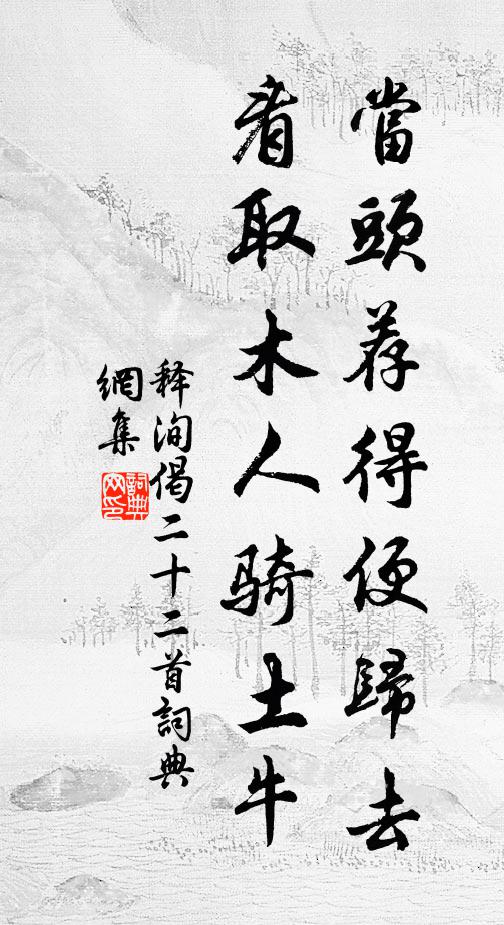 當頭荐得便歸去
看取木人骑土牛
释洵偈二十二首詞典
網集
詞典网印